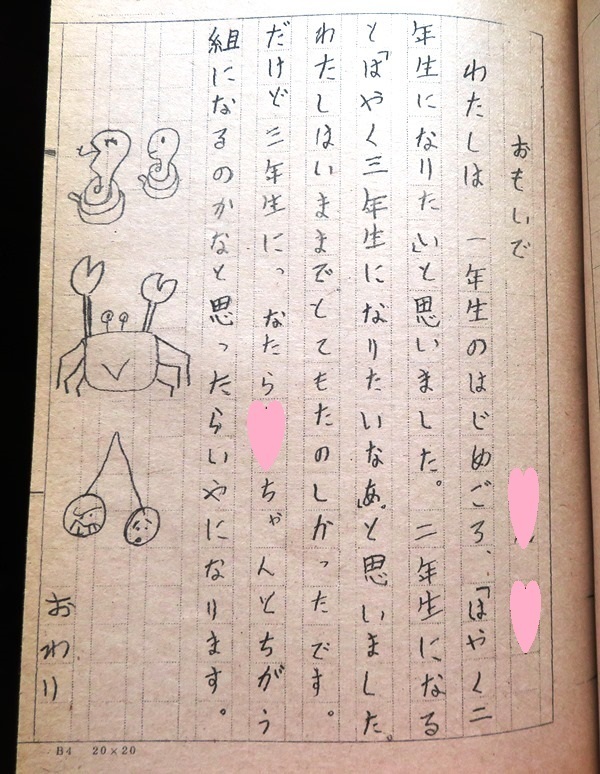 おもいで
わたしは 一年生のはじめごろ、「はやく二
年生になりたい」と思いました。二年生になる
と「はやく三年生になりたいなあ。」と思いました。
わたしはいままでとてもたのしかったです。
だけど三年生にっなたら ちゃんとちがう
組になるのかなと思ったらいやになります。
おわり
B4 20×20